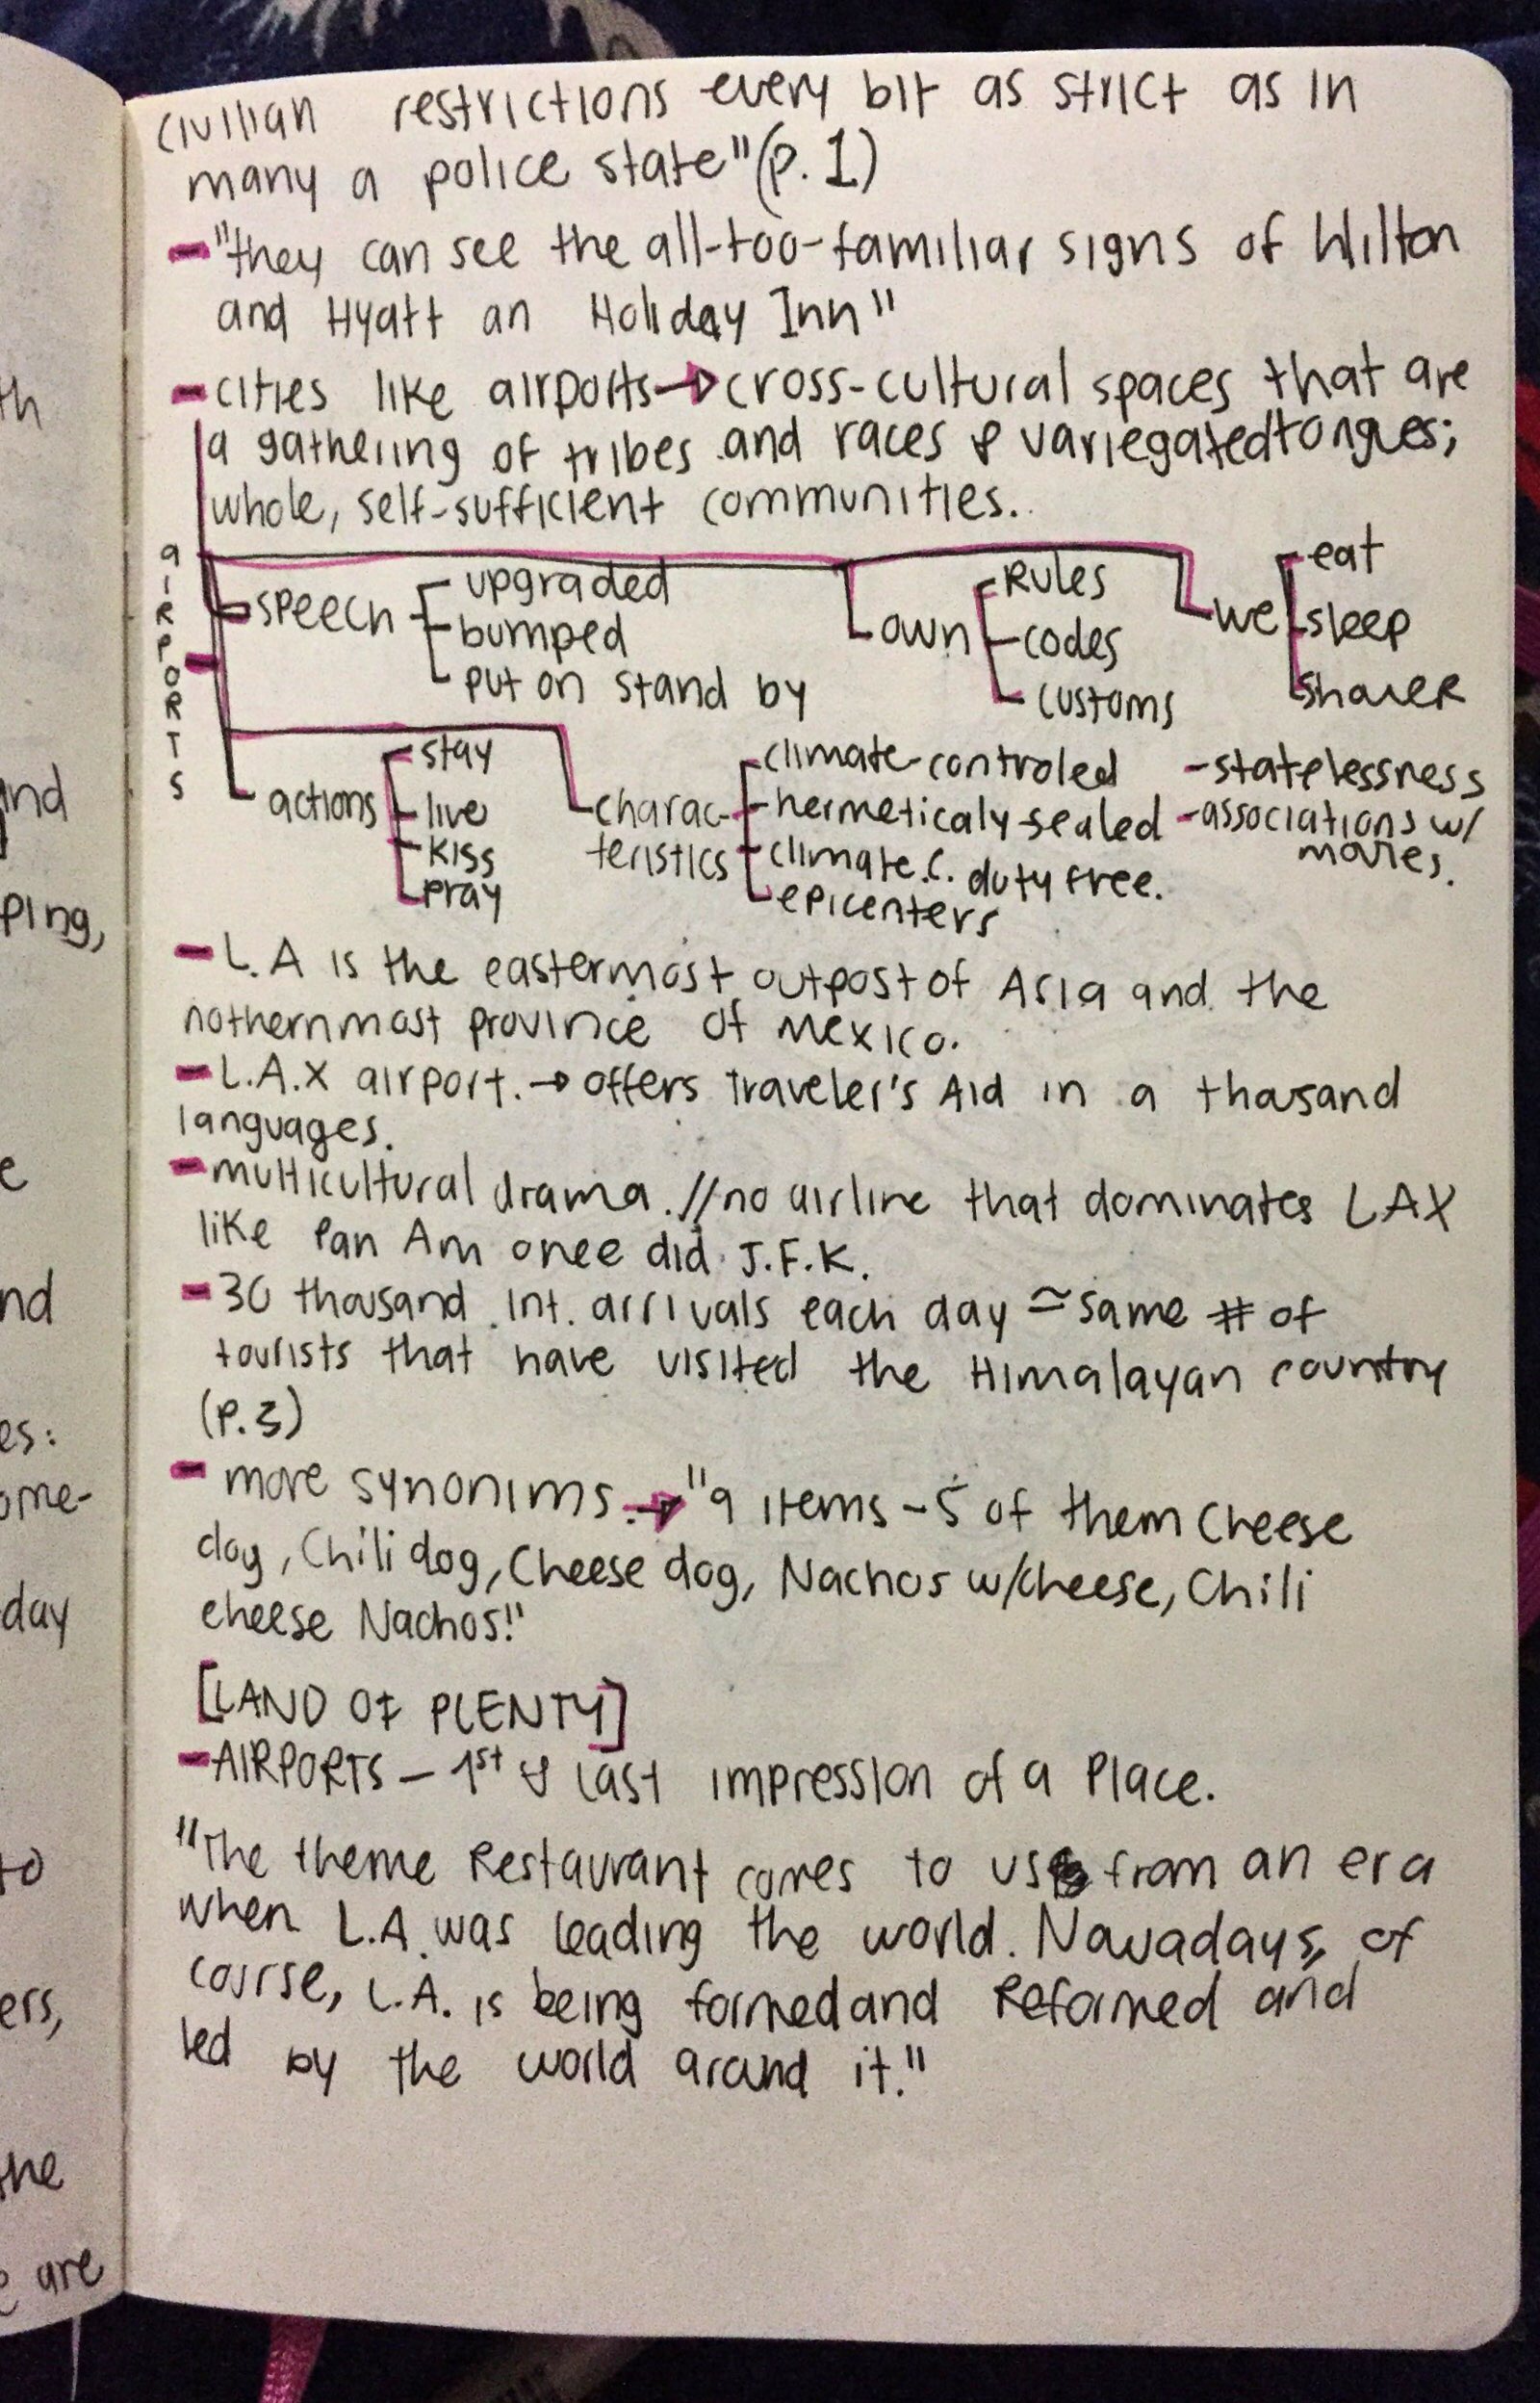 civilian restrictions every bit as strict as in
many a police state" (p. 1)
- "they can see the all-too-familiar signs of Hilton
and Hyatt an Holiday Inn"
- cities like airports → cross-cultural spaces that are
a gathering of tribes and races & variegated tongues;
whole, self-sufficient communities.
AIRPORTS
speech
upgraded
bumped
put on stand by
own
Rules
codes
customs
we
eat
sleep
shower
actions
stay
live
kiss
pray
charac-
teristics
climate-controled
hermeticaly-sealed
climate.c. duty free.
epicenters
- statelessness
- associations w/
movies.
- L.A is the easternmost outpost of Asia and the
nothernmost province of Mexico.
- L.A.X airport. → offers Traveler's Aid in a thousand
languages.
- multicultural drama. // no airline that dominates LAX
like Pan Am once did J.F.K.
- 30 thousand int. arrivals each day ≃ same # of
tourists that have visited the Himalayan country
(P.3)
- more synonims. → "9 items - 5 of them Cheese
dog, Chili dog, Cheese dog, Nachos w/cheese, Chili
cheese Nachos!"
[LAND OF PLENTY]
- AIRPORTS - 1st & last impression of a place.
"The theme Restaurant comes to us from an era
when L.A. was leading the world. Nowadays, of
course, L.A. is being formed and Reformed and
led by the world around it."
th
and
ping,
e
nd
es:
ome-
day
to
ers,
the
e are